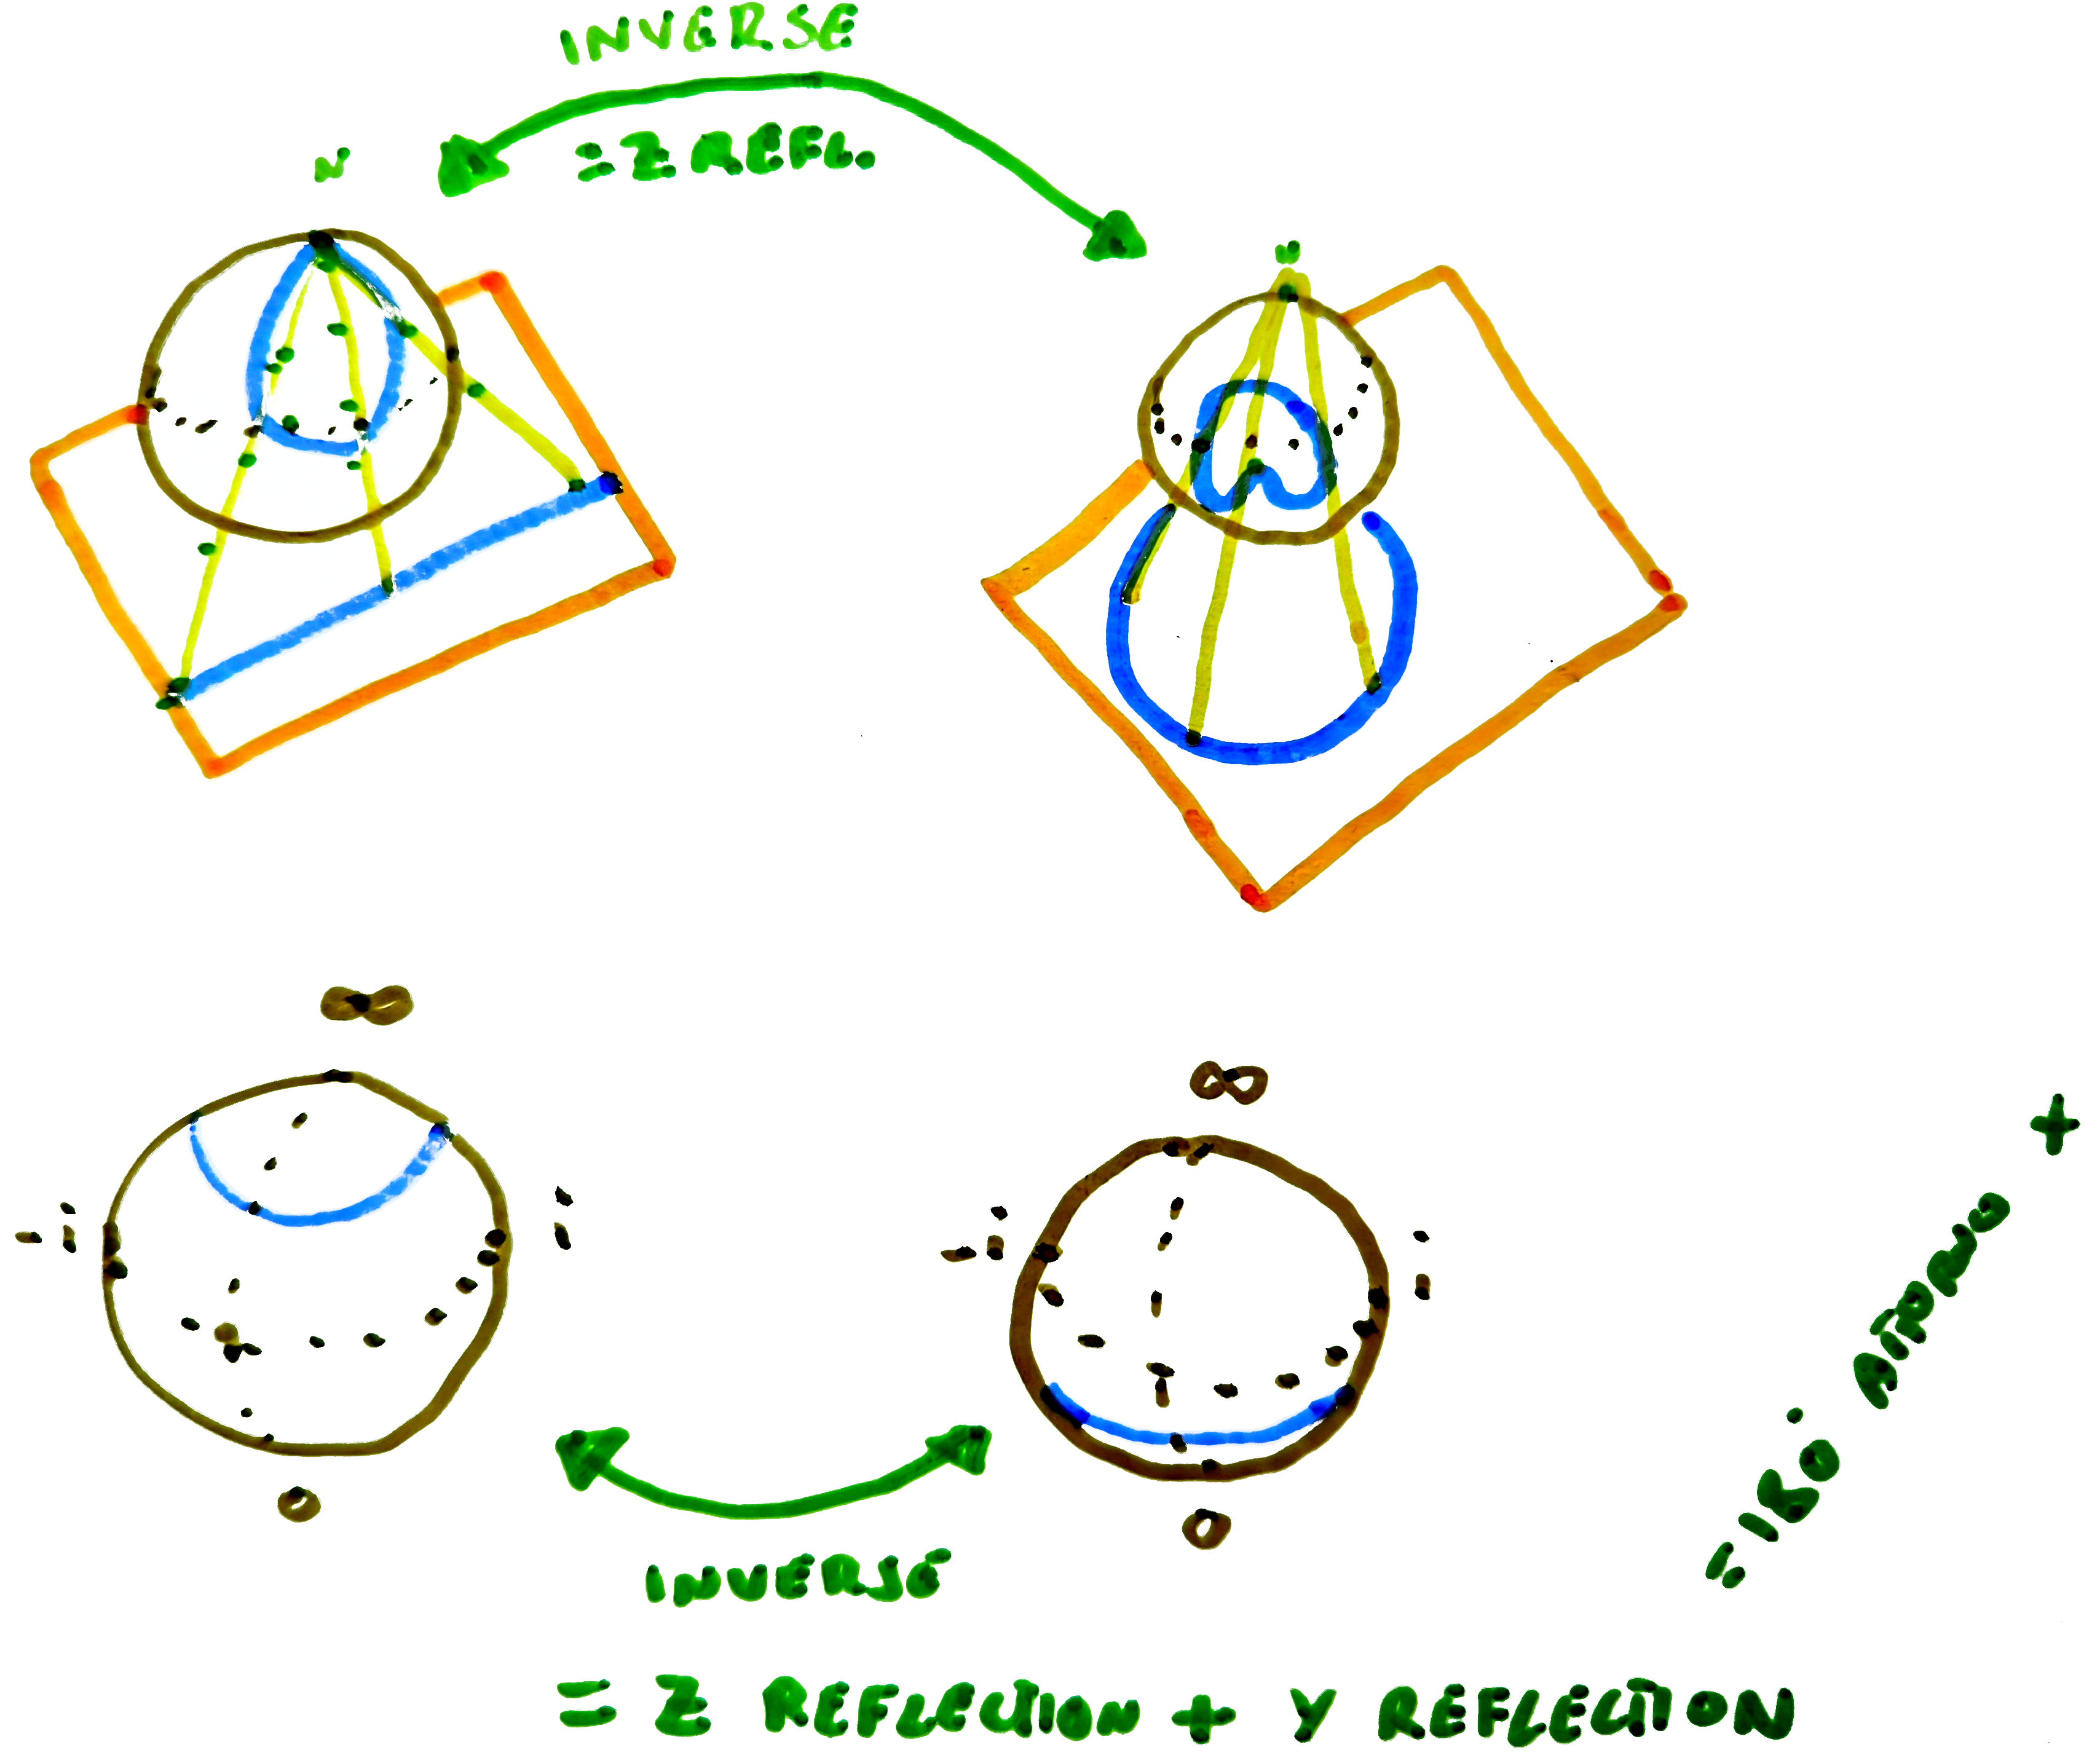 INVERSE
= Z REFL.
N
N
∞
∞
-i
i
-i
i
0
0
INVERSE
= Z REFLECTION + Y REFLECTION
= 180° AROUND X